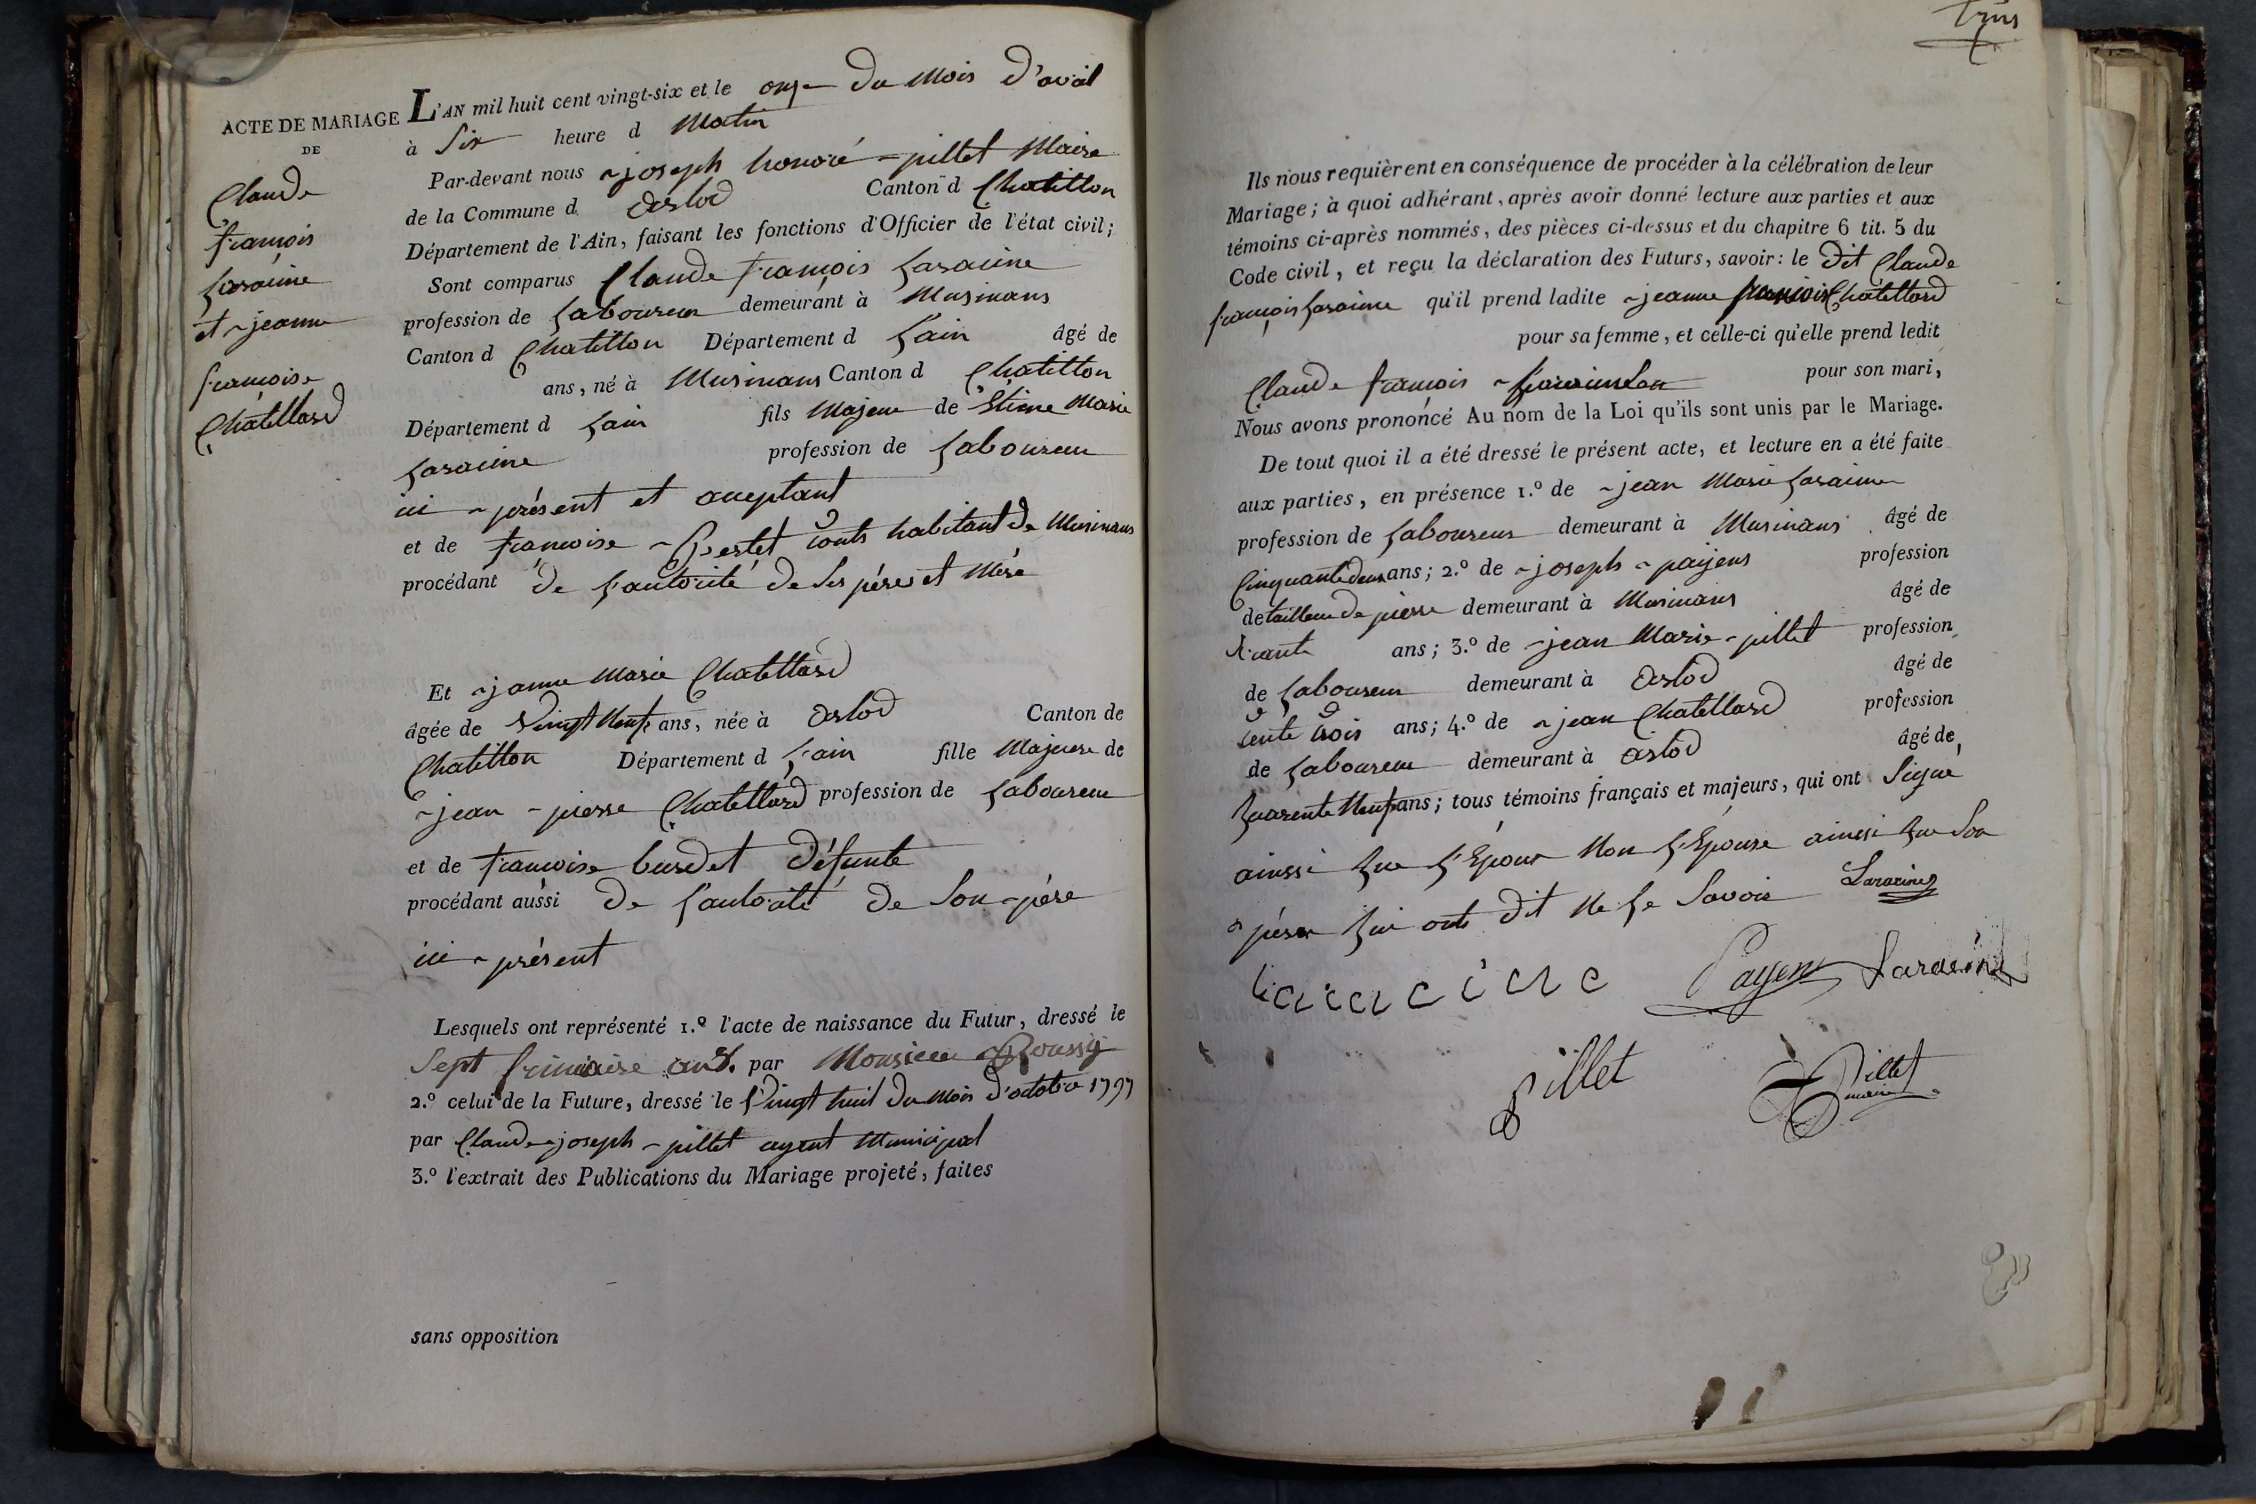 ACTE DE MARIAGE
DE
Claude
françois
Laracine
et jeanne
françoise
Chatellard
L'AN mil huit cent vingt-six et le onze du mois d'avril
à Six heure d Matin
Par-devant nous joseph honoré pillet Maire
de la Commune d arlod Canton d Chatillon
Département de l'Ain, faisant les fonctions d'Officier de l'état civil;
Sont comparus Claude françois Laracine
profession de Laboureur demeurant à Musinans
Canton d Chatillon Département d L'ain âgé de
ans, né à Musinans Canton d Chatillon
Département d Lain fils Majeur de Etiene Marie
Laracine profession de Laboureur
ici présent et aceptant
et de francoise touts habitant de Musinans
procédant de L'autorité de Ses pére et Mére
Et janne Marie Chatellard
âgée de Vingt Neuf ans, née à arlod Canton de
Chatillon Département d L'ain fille Majeure de
jean pierre Chatellard profession de Laboureur
et de francoise burdet Défunte
procédant aussi de L'autorité de Son pére
ici présent
Lesquels ont représenté 1.º l'acte de naissance du Futur, dressé le
Sept frimaire par Monsieur Roussy
2.º celui de la Future, dressé le Vingt huit du mois d'octobre 1797
par Claude joseph pillet agent Municipal
3.º l'extrait des Publications du Mariage projeté, faites
sans opposition
Ils nous requièrent en conséquence de procéder à la célébration de leur
Mariage; à quoi adhérant, après avoir donné lecture aux parties et aux
témoins ci-après nommés, des pièces ci-dessus et du chapitre 6 tit. 5 du
Code civil, et reçu la déclaration des Futurs, savoir: le dit Claude
françois Laracine qu'il prend ladite jeanne francoise Chatellard
pour sa femme, et celle-ci qu'elle prend ledit
Claude françois pour son mari,
Nous avons prononcé Au nom de la Loi qu'ils sont unis par le Mariage.
De tout quoi il a été dressé le présent acte, et lecture en a été faite
aux parties, en présence 1.º de jean Marie Laracine
profession de Laboureur demeurant à Musinans âgé de
Cinquante deux ans; 2.º de joseph payens profession
de tailleur de pierre demeurant à Musinans âgé de
ans; 3.º de jean Marie pillet profession
de Laboureur demeurant à arlod âgé de
trente trois ans; 4.º de jean Chatellard profession
de Laboureur demeurant à arlod âgé de
quarente Neuf ans; tous témoins français et majeurs, qui ont Signé
ainssi que L'Epoux Non L'Epouse ainssi que Son
pére qui ont dit Ne Le Savoir Laracine
Laracine Payen Laracine
pillet Pillet
maire